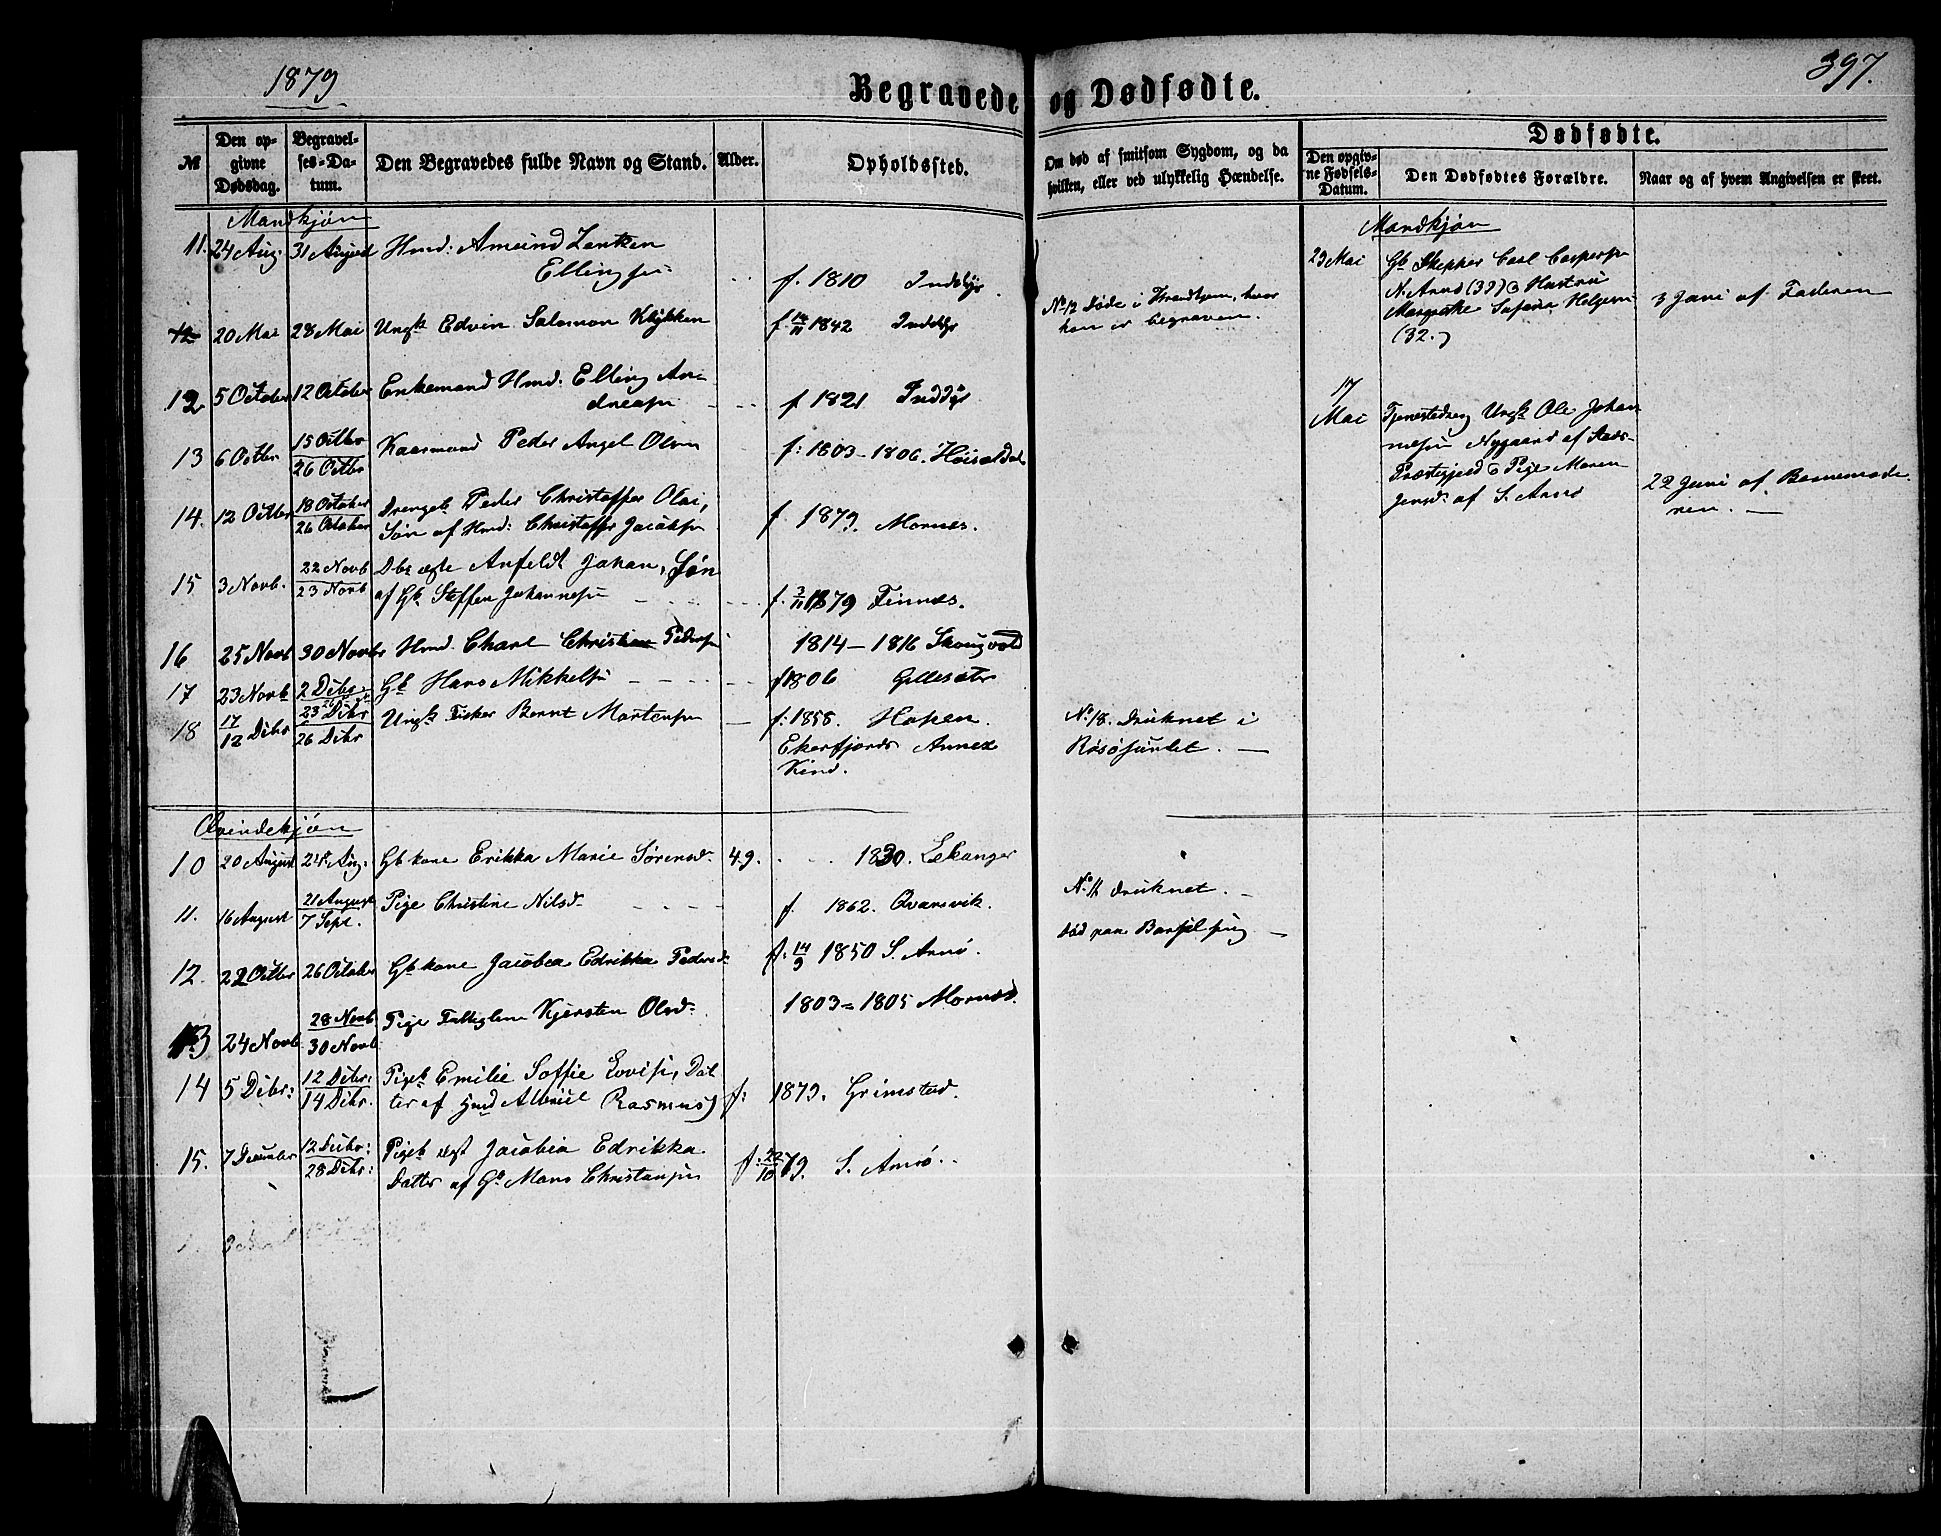 1879
Begravede og Dødfødte.
397.
№
Den opgivne Dødsdag.
Begravelses-Datum.
Den Begravedes fulde Navn og Stand.
Alder.
Opholdssted.
Om død af smitsom Sygdom, og da hvilken, eller ved ulykkelig Hændelse.
Dødfødte.
Den opgivne Fødsels-Datum.
Den Dødfødtes Forældre.
Naar og af hvem Angivelsen er skeet.
Mandkjøn
11. 24 Aug. 31 August Hmd: Amund Zentzen
Ellingsen f. 1810 Inddyr
12 20 Mai 28 Mai Ungk Edvin Salamon Klykken f. 14/11 1842 Inddyr
No 12 Døde i Trondhjem, hvor
han er begraven.
12 5 October 12 October Enkemand Hmd: Elling An-
dreasen f 1821 Inddyr
13 6 Octbr 15 Octbr
26 Octbr Kaarmand Peder Angel Olsen f: 1803 - 1806.
14. 12 Octbr 18 October
26 October Drengeb. Peder Christoffer Olai,
Søn af Hmd: Christoffer Jacobsen f. 1879. Mornes.
15 3 Novb. 22 Novb
23 Novb Dbr ægte Anfeldt Johan, Søn
af Gb. Steffen Johannesen f. 3/11 1879 Finnes.
16 25 Novb 30 Novbr Hmd. Charl Christian Pedersen 1814 - 1816 Skougvold
17 23 Novb 2 Dcbr Gb Hans Mikkelsen f 1806 Gillesæter
18 17/12 Dcbr 23 Dcbr
26 Dcbr Ungk Fisker Bernt Martensen f: 1858. Hopen.
Ekerfjords Annex
Kind.
No 18. Druknet i
Røsøsundet.
Qvindekjøn
10 20 August 24 Aug: Gb kone Erikka Marie Sørensd. 49. 1830. Lekanger
11. 16 August 21 August
7 Sept. Pige Christine Nilsd. f. 1862. Qvarsvik.
No 11 druknet.
12. 22 Octbr 26 October Gb kone Jacobea Edrikka Pedersd f. 14/9 1850 S. Arnø.
død paa Barselseng
13 24 Novb 28 Novb
30 Novb Pige Fattiglem Kjersten Olsd. 1803 = 1805 Mornes.
14 5 Dcbr: 12 Dcbr:
14 Dcbr. Pigeb. Emilie Soffie Lovise, Dat
ter af Hmd Albriel Rasmus) f: 1879. Grimstad.
15. 7 December 12 Decbr:
28 Dcbr: Pigeb ægt Jacobia Edrikka
Datter af Gb Mons Christensen f. 22/10 79. S. Arnø.
Mandkjøn
23 Mai Gb Skipper Carl Caspersen
N. Arnø (37) & Hustru
Margrethe Helgesen
(32.)
3 Juni af Faderen
17
Mai Tjenestedreng Ungk Ole Johan
nesen Nygaard af
Præstegjeld & Pige Maren
Jensd. af S. Arnø
22 Juni af Barnemode
ren.